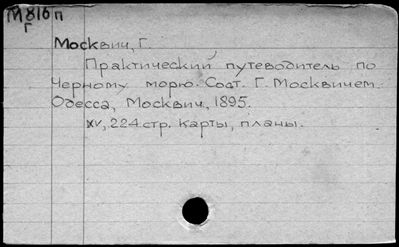 М816п
Г
Москвич, Г.
Практический путеводитель по
Черному морю. Сост. Г. Москвичем.
Одесса, Москвич, 1895.
XV, 224 стр. карты, планы.